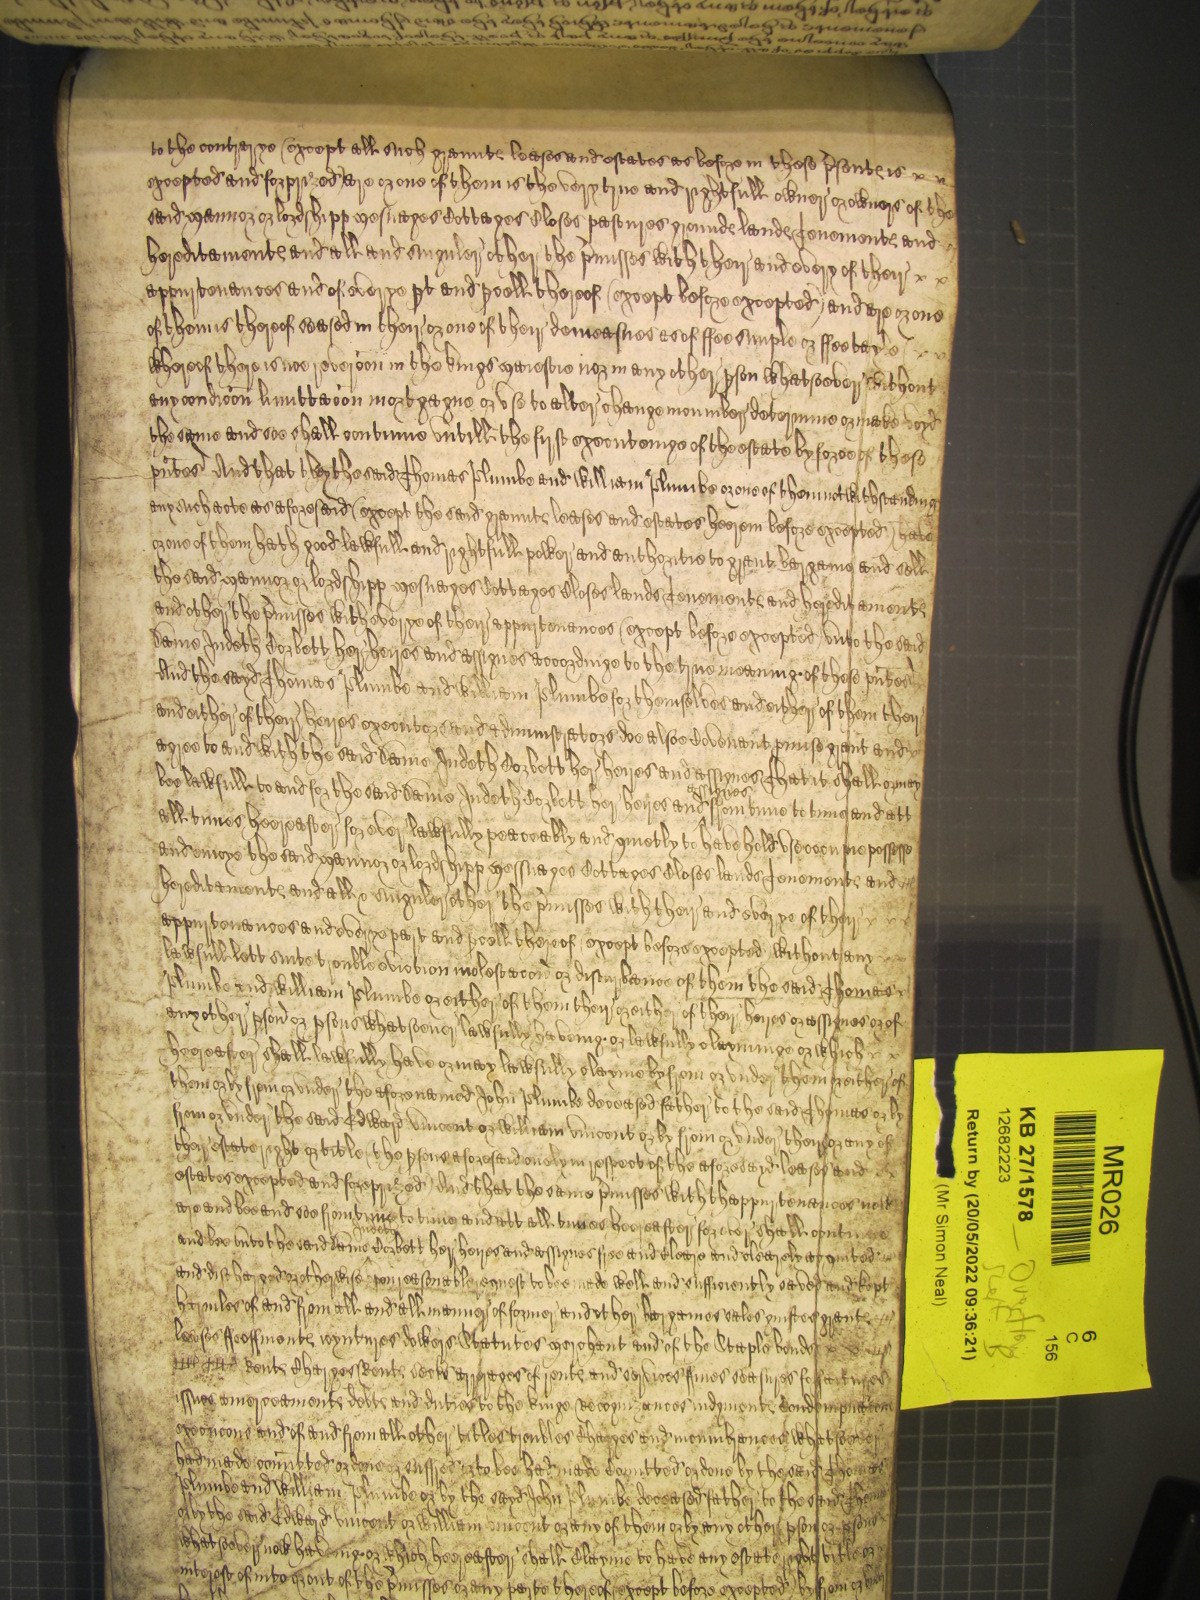 to the contrarye (except all such graunts leases and estates as before in these p'sents is x x
excepted and forprized are or one of them is the very true and rightfull owner or owners of the
said mannor or lordshipp mesuages Cottages Closes pastures grounds lands Tenements and
hereditaments and all and singuler other the p'misses with their and every of their x x
appurtenances and of everye pt and p'cell thereof (except before excepted) and are or one
of them is thereof seased in their or one of their demeasnes as of ffee simple or ffee tayle x x
whereof there is noe rever'con in the kings maiestie nor in any other p'son whatsoever without
any condicon limittacon mortgagne or use to alter change mcumber determine or make voyd
the same and soe shall continue untill the first executeinge of the estate by force of these
p'ntes And that they the said Thomas Plumbe and William Plumbe or one of them notwithstanding
any such acte as aforesaid (except the said graunts leases and estates heerein before excepted) have
or one of them hath good lawfull and rightfull power and authoritie to graunt bargaine and sell
the said mannor or lordshipp mesuages Cottages Closes lands Tenements and hereditaments
and other the p'misses with everye of their appurtenances (except before excepted) unto the said
Dame Judeth Corbett her heires and assignes accordinge to the true meaning of these p'ntes
And the sayd Thomas Plumbe and William Plumbe for themselves and either of them their
and either of their heires executors and administrators doe alsoe Covenant p'mise grant and
agree to and with the said Dame Judeth Corbett her heires and assignes That it shall or may
bee lawfull to and for the said Dame Judeth Corbett her heires and assignes from time to time and att
all times heereafter for ever lawfully peaceably and quietly to have hold use occupie possesse
and enioye the said mannor or lordshipp messuages Cottages Closes lands Tenements and
hereditaments and all & singuler other the p'misses with their and everye of their
appurtenances and everye part and p'cell thereof (except before excepted) without any
lawfull lett suite trouble eviction molestacon or disturbance of them the said Thomas
Plumbe and William Plumbe or either of them their or either of their heires or assignes or of
any other p'son or p'sons whatsoever lawfully haveing or lawfully clayminge or which x x
heereafter shall lawfully have or may lawfully clayme by from or under them or either of
them or by from or under the aforenamed John Plumbe deceased father to the said Thomas or by
from or under the said Edward Vincent or William Vincent or by from or under their or any of
their estate right or title (the p'sons aforesaid onely in respect of the aforesayd leases and
estates excepted and forprized) And that the same p'misses with thappurtenances now
are and bee and soe from time to time and att all times heereafter for ever shall continue
and bee unto the said Dame Judeth Corbett her heires and assignes free and cleare and clearely acquited
and discharged or otherwise upon reasonable request to bee made well and sufficiently saved and kept
harmles of and from all and all manner of former and other bargaines sales guiftes grants
leases ffeoffments ioyntures dowers Statutes merchant and of the Staple bonds
Rents Charges Rents Secke arrerages of rents and services ffines seasures forfaitures
issues amerceaments debts and duties to the kinge Recognizances iudgments Condempnations
execucons and of and from all other titles troubles Charges and incumbrances whatsoever
had made comitted or done or suffred or to bee had made comitted or done by the said Thomas
Plumbe and William Plumbe or by the sayd John Plumbe deceased father to the said Thomas
or by the said Edward Vincent or William Vincent or any of them or by any other p'son or p'sons
whatsoever now having or which heereafter shall clayme to have any estate right title or
interest of into or out of the p'misses or any parte thereof (except before excepted) by from or under
MR026
6
C
156
KB 27/1578
12682223
Return by (20/05/2022 09:36:21)
(Mr Simon Neal)